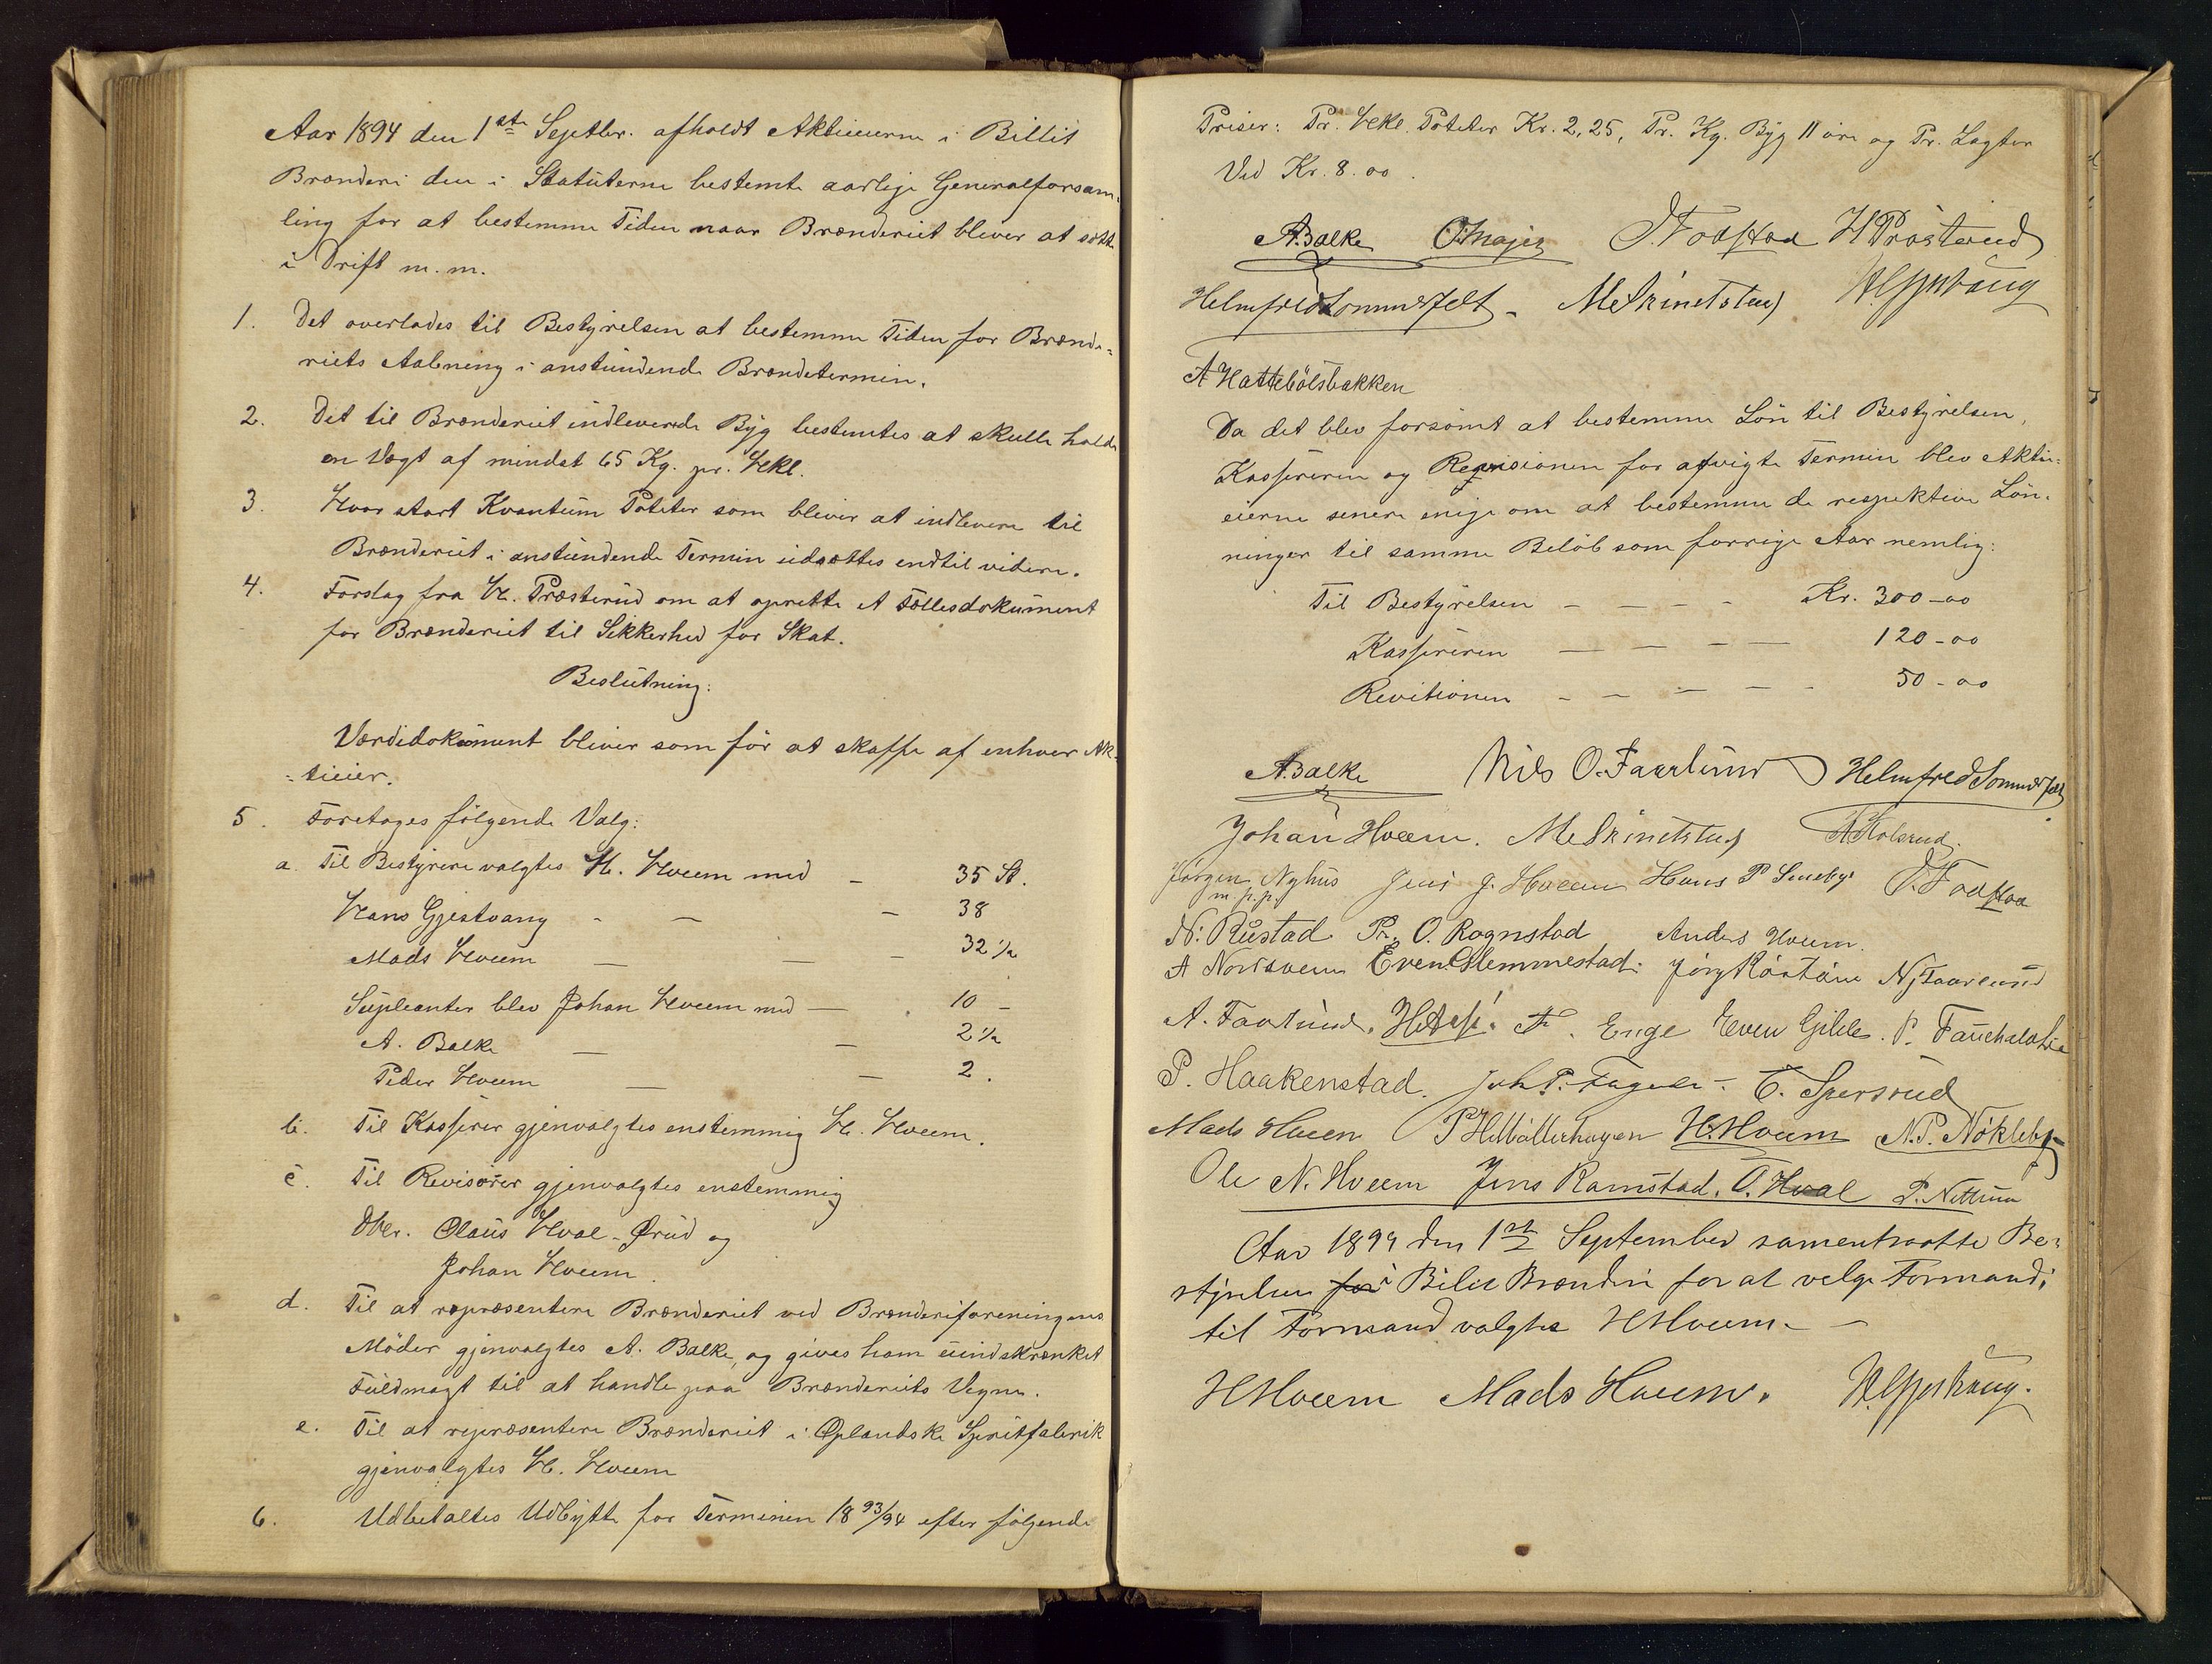 Aar 1894 den 1ste Septbr. afholdt Aktieierne i Billit
Brænderi den i Statuterne bestemte aarlige Generalforsam-
ling for at bestemme Tiden naar Brænderiet bliver at sætte
i Drift m. m.
1. Det overlades til Bestyrelsen at bestemme Tiden for Brænde-
riets Aabning i anstundende Brændetermin.
2. Det til Brænderiet indleverede Byg bestemtes at skulle holde
en Vægt af mindst 65 Kg. pr. Hekl.
3. Hvor stort Kvantum Poteter som bliver at indlevere til
Brænderiet i anstundende Termin udsættes endtil videre.
4. Forslag fra H. Præsterud om at oprette et Fællesdokument
for Brænderiet til Sikkerhed for Skat.
Beslutning:
Værdidokument bliver som før at skaffe af enhver Ak-
tieier.
5. Foretages følgende Valg:
a. Til Bestyrere valgtes H. Hveem med — 35 St.
Hans Gjestvang - — — 38
Mads Hveem — — - 32 1/2
Supleanter blev Johan Hveem med — 10 -
A. Balke — — 2 1/2
Peder Hveem — — 2.
b. Til Kasserer gjenvalgtes enstemmig H. Hveem.
c. Til Revisører gjenvalgtes enstemmig
Dhr. Olaus Hval-Grud og
Johan Hveem.
d. Til at repræsentere Brænderiet ved Brænderiforeningens
Møder gjenvalgtes A. Balke, og gives ham uindskrænket
Fuldmagt til at handle paa Brænderiets Vegne.
e. Til at repræsentere Brænderiet i Oplandske Spritfabrik
gjenvalgtes H. Hveem
6. Udbetaltes Udbytte for Terminen 18 93/94 efter følgende
Priser: Pr. Hekl. Poteter Kr. 2,25, Pr. Kg. Byg 11 øre og Pr. Lagter
Ved Kr. 8.00.
A. Balke O. Majer J. Fodstad H Præsterud
Helmfred Sommerfelt. M Skinstad H Gjestvang
A Hattebölsbakken
Da det blev forsømt at bestemme Løn til Bestyrelsen,
Kassereren og Revisionen for afvigte Termin blev Aktie-
eierne senere enige om at bestemme de respektive Løn-
ninger til samme Beløb som forrige Aar nemlig:
Til Bestyrelsen - — - - Kr. 300-00
Kassereren — — - — 120-00
Revitionen - — — — - 50-00
A. Balke Nils O. Faarlund Helmfred Sommerfelt
Johan Hveem. M Skinstad A Kolsrud.
Jörgen Nyhus Jens J. Hveem Hans P Seneby J. Fodstad
m. p. p.
N. Rustad Pr. O. Rognstad Anders Hveem.
A Nordsveen Even Glemmestad. N Faarlund
A. Faarlund. Enge Even Gihle. P. Fauchald
P. Haakenstad. Joh P. Fagerli - E. Spersrud
Mads Hveem P Hilböllerhagen H. Hveem N. P. Nökleby
Ole N. Hveem Jens Ramstad. O. Hval P. Nettum
Aar 1894 den 1ste September samentraatte Be-
styrelsen for i Bilit Brænderi for at velge Formand;
til Formand valgtes H Hveem. —
H Hveem Mads Hveem. H Gjestvang.